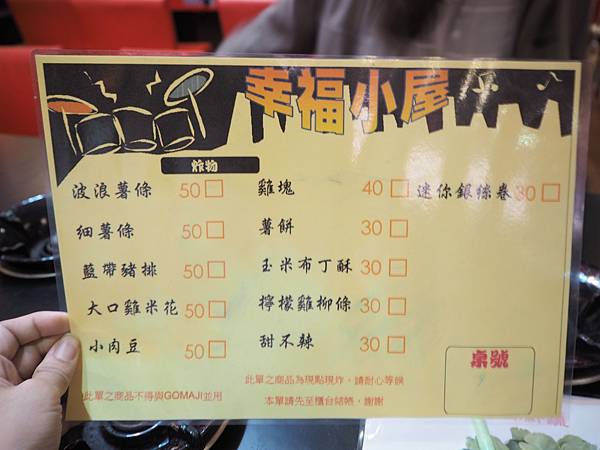 幸福小屋
炸物
波浪薯條 50□
細薯條 50□
藍帶豬排 50□
大口雞米花 50□
小肉豆 50□
雞塊 40□
薯餅 30□
玉米布丁酥 30□
檸檬雞柳條 30□
甜不辣 30□
迷你銀絲卷 30□
桌號
此單之商品不得與GOMAJI並用
此單之商品為現點現炸，請耐心等候
本單請先至櫃台結帳，謝謝